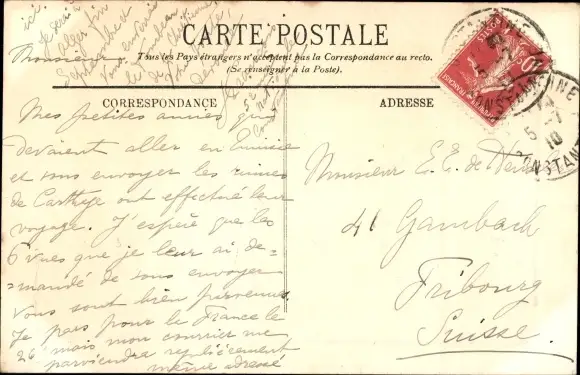 CARTE POSTALE
Tous les Pays étrangers n'acceptent pas la Correspondance au recto.
(Se renseigner à la Poste).
CORRESPONDANCE
ADRESSE
ici.
Je serai à
Alger fin
Septembre et
vous
Monsieur,
Mes petites amies qui
devaient aller en Tunisie
et vous envoyer les ruines
de Carthage ont effectué leur
voyage. J'espère que les
6 vues que je leur ai de=
=mandé de vous envoyer
vous sont bien parvenues.
Je pars pour la France le
26 mais mon courrier me
parviendra régulièrement
même adresse
Monsieur E. E. de
41 Gambach
Fribourg
Suisse.
10
5 -7
10
CONSTANTINE